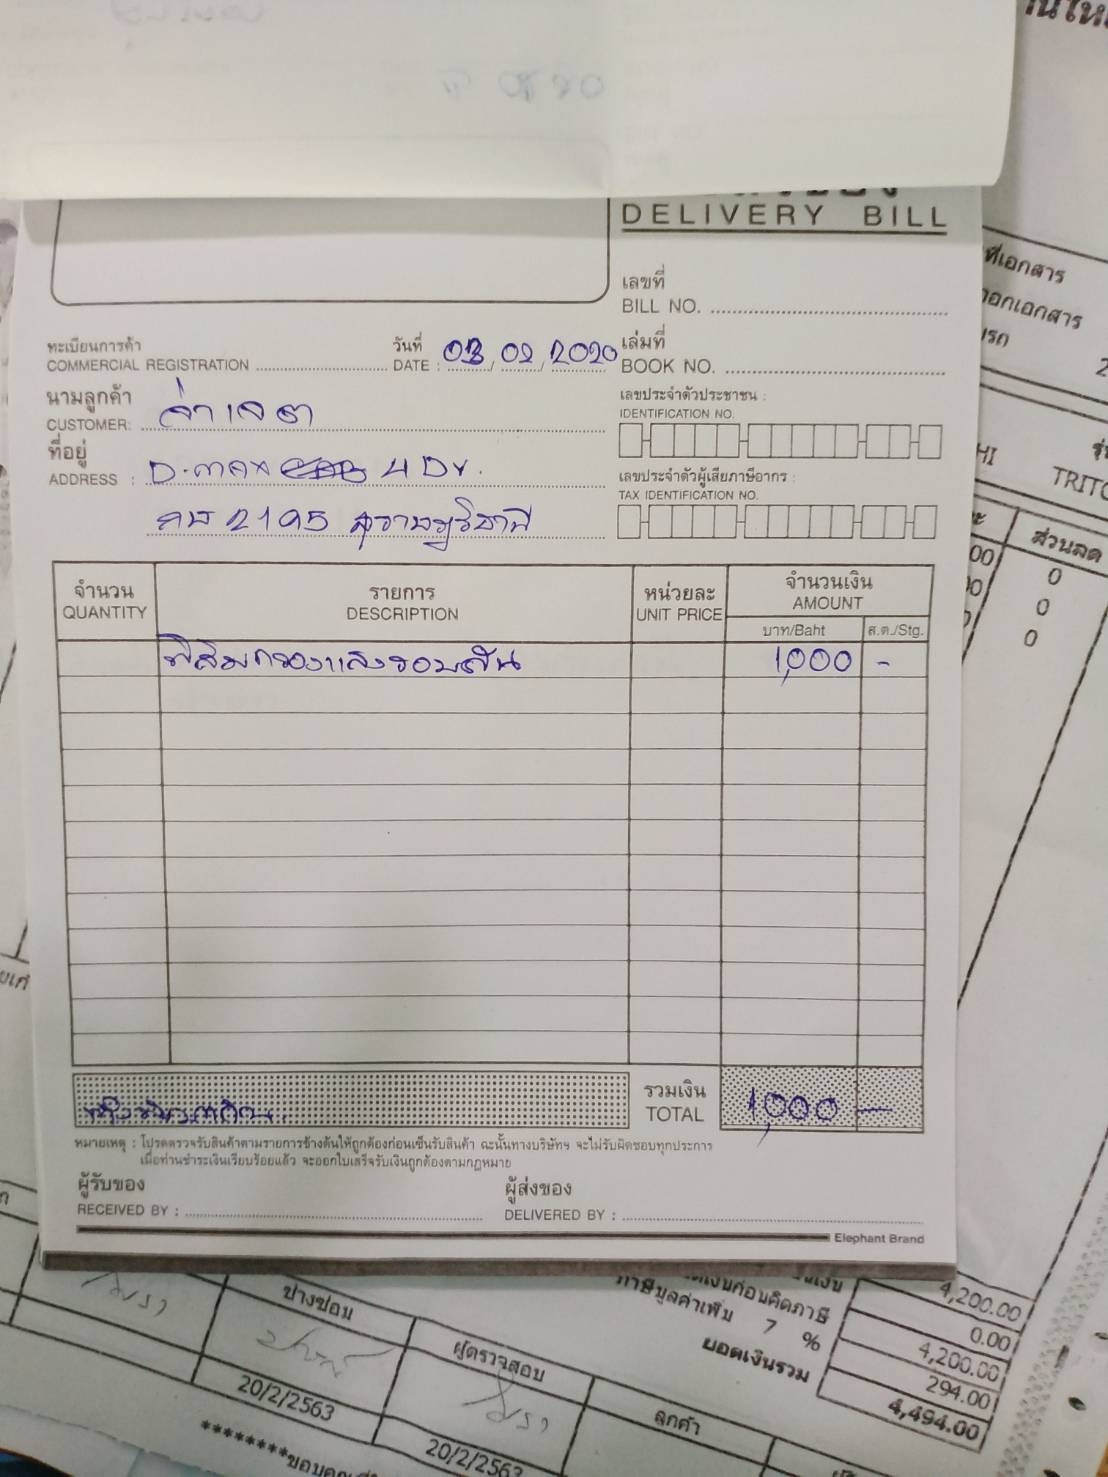 DELIVERY BILL
เลขที่
BILL NO.
ทะเบียนการค้า
COMMERCIAL REGISTRATION
วันที่
DATE : 03/02/2020
เล่มที่
BOOK NO.
นามลูกค้า
CUSTOMER:
ที่อยู่
ADDRESS : D.max 4 Dr.
2195 สุราษฎร์ธานี
เลขประจำตัวประชาชน :
IDENTIFICATION NO.
เลขประจำตัวผู้เสียภาษีอากร :
TAX IDENTIFICATION NO.
จำนวน
QUANTITY
รายการ
DESCRIPTION
หน่วยละ
UNIT PRICE
จำนวนเงิน
AMOUNT
บาท/Baht
ส.ต./Stg.
ฟิล์มกรองแสงรอบคัน 1,000 -
รวมเงิน
TOTAL 1,000 -
หมายเหตุ : โปรดตรวจรับสินค้าตามรายการข้างต้นให้ถูกต้องก่อนเซ็นรับสินค้า ฉะนั้นทางบริษัทฯ จะไม่รับผิดชอบทุกประการ
เมื่อท่านชำระเงินเรียบร้อยแล้ว จะออกใบเสร็จรับเงินถูกต้องตามกฎหมาย
ผู้รับของ
RECEIVED BY :
ผู้ส่งของ
DELIVERED BY :
Elephant Brand
ที่เอกสาร
ออกเอกสาร
ส่วนลด
0
0
0
4,200.00
0.00
4,200.00
ภาษีมูลค่าเพิ่ม 7 % 294.00
ยอดเงินรวม 4,494.00
ช่างซ่อม
ผู้ตรวจสอบ
ลูกค้า
20/2/2563
20/2/2563